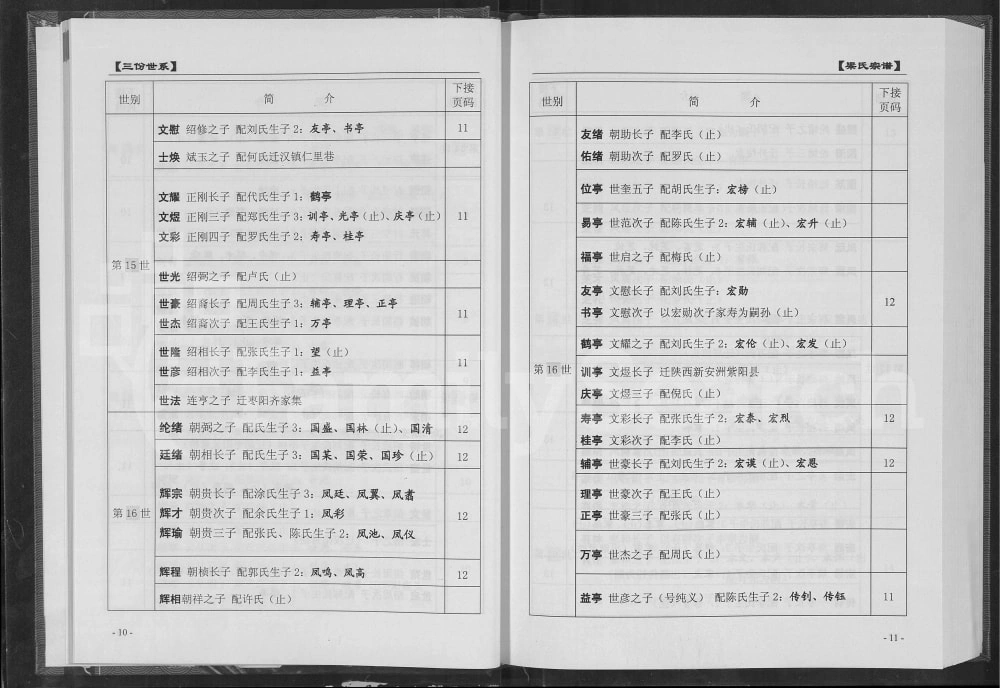 【三份世系】
世别 简 介 下接页码
第15世
文慰 绍修之子 配刘氏生子2：友亭、书亭 11
士焕 斌玉之子 配何氏迁汉镇仁里巷
文耀 正刚长子 配代氏生子1：鹤亭
文煜 正刚三子 配郑氏生子3：训亭、光亭（止）、庆亭（止） 11
文彩 正刚四子 配罗氏生子2：寿亭、桂亭
世光 绍弼之子 配卢氏（止）
世豪 绍裔长子 配周氏生子3：辅亭、理亭、正亭
世杰 绍裔次子 配王氏生子1：万亭 11
世隆 绍相长子 配张氏生子1：望（止）
世彦 绍相次子 配李氏生子1：益亭 11
世法 连亨之子 迁枣阳齐家集
第16世
纶绪 朝弼之子 配氏生子3：国盛、国林（止）、国清 12
廷绪 朝相长子 配氏生子3：国某、国荣、国珍（止） 12
辉宗 朝贵长子 配涂氏生子3：凤廷、凤翼、凤翥
辉才 朝贵次子 配余氏生子1：凤彩 12
辉瑜 朝贵三子 配张氏、陈氏生子2：凤池、凤仪
辉程 朝桢长子 配郭氏生子2：凤鸣、凤高 12
辉相朝祥之子 配许氏（止）
- 10 -
【梁氏宗谱】
世别 简 介 下接页码
第16世
友绪 朝助长子 配李氏（止）
佑绪 朝助次子 配罗氏（止）
位亭 世奎五子 配胡氏生子：宏榜（止）
易亭 世范次子 配陈氏生子2：宏辅（止）、宏升（止）
福亭 世启之子 配梅氏（止）
友亭 文慰长子 配刘氏生子：宏勋
书亭 文慰次子 以宏勋次子家寿为嗣孙（止） 12
鹤亭 文耀之子 配刘氏生子2：宏伦（止）、宏发（止）
训亭 文煜长子 迁陕西新安洲紫阳县
庆亭 文煜三子 配倪氏（止）
寿亭 文彩长子 配张氏生子2：宏泰、宏烈 12
桂亭 文彩次子 配李氏（止）
辅亭 世豪长子 配刘氏生子2：宏谟（止）、宏恩 12
理亭 世豪次子 配王氏（止）
正亭 世豪三子 配张氏（止）
万亭 世杰之子 配周氏（止）
益亭 世彦之子（号纯义） 配陈氏生子2：传钊、传钰 11
- 11 -